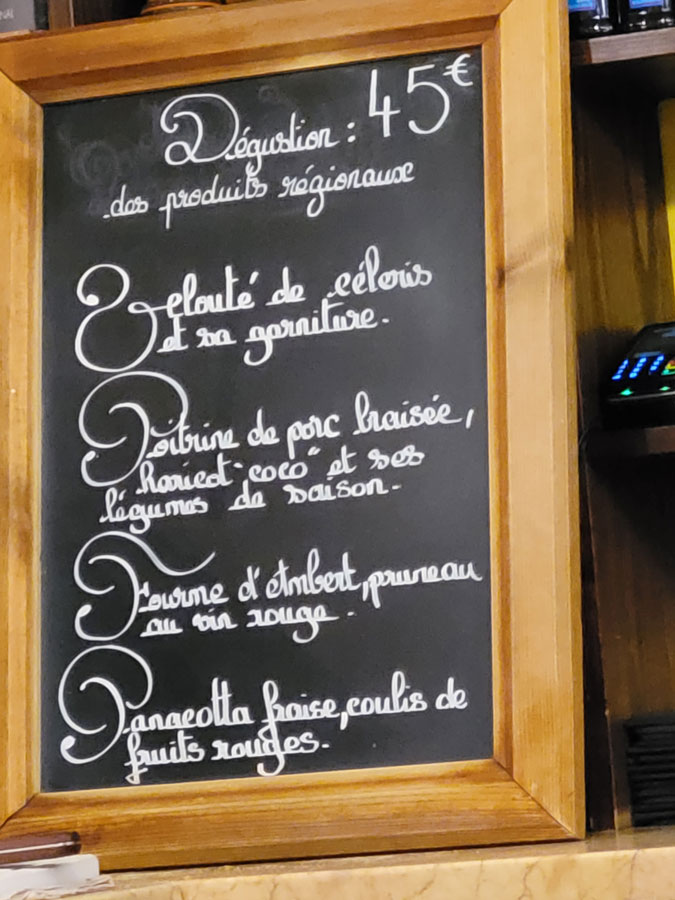 Dégustion : 45€
des produits régionaux
Velouté de céleris
et sa garniture.
Poitrine de porc braisée,
haricot "coco" et ses
légumes de saison.
Fourme d'Ambert, pruneau
au vin rouge.
Panacotta fraise, coulis de
fruits rouges.